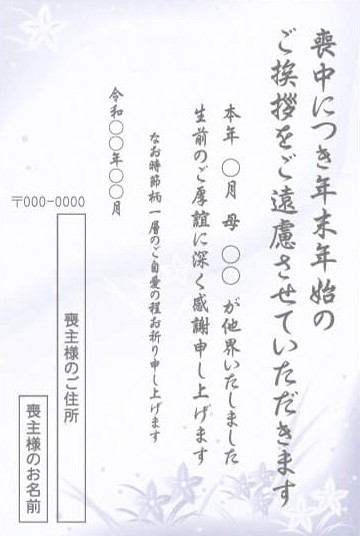 喪中につき年末年始の
ご挨拶をご遠慮させていただきます
本年 〇月 母 〇〇 が他界いたしました
生前のご厚誼に深く感謝申し上げます
なお時節柄一層のご自愛の程お祈り申し上げます
令和〇〇年〇〇月
〒000-0000
喪主様のご住所
喪主様のお名前